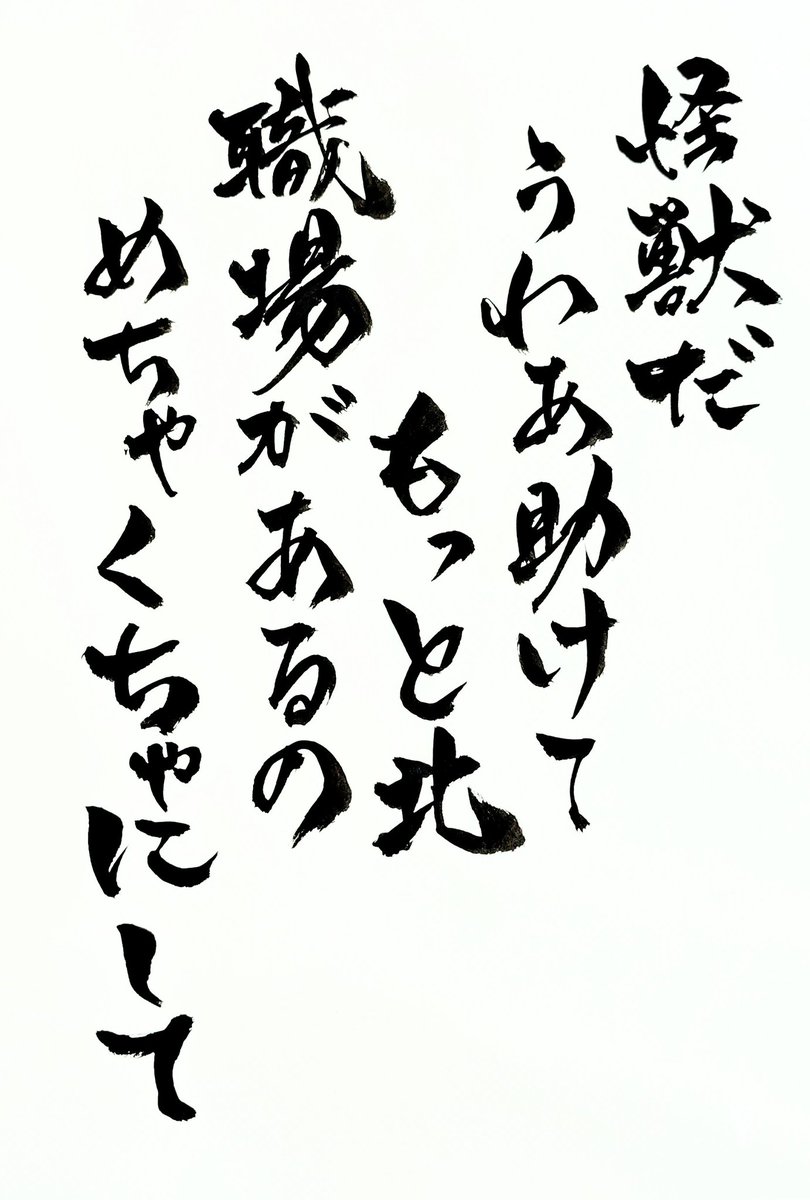 怪獣だ
うわあ助けて
もっと北
職場があるの
めちゃくちゃにして